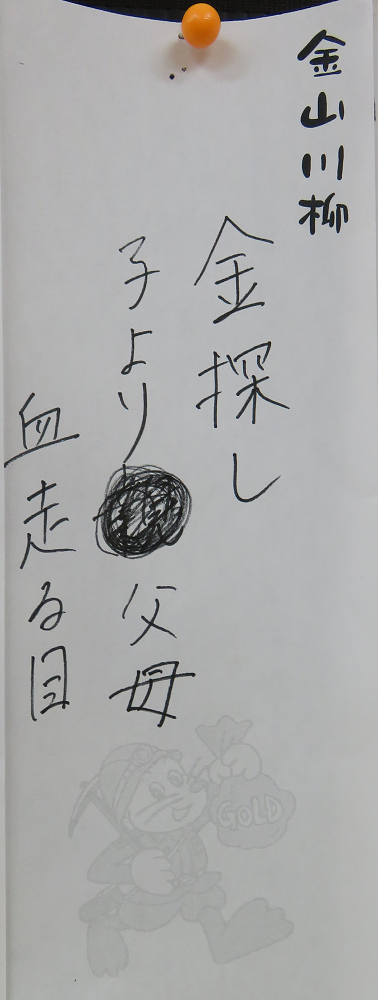 金山川柳
金探し
子より父母
血走る目
GOLD